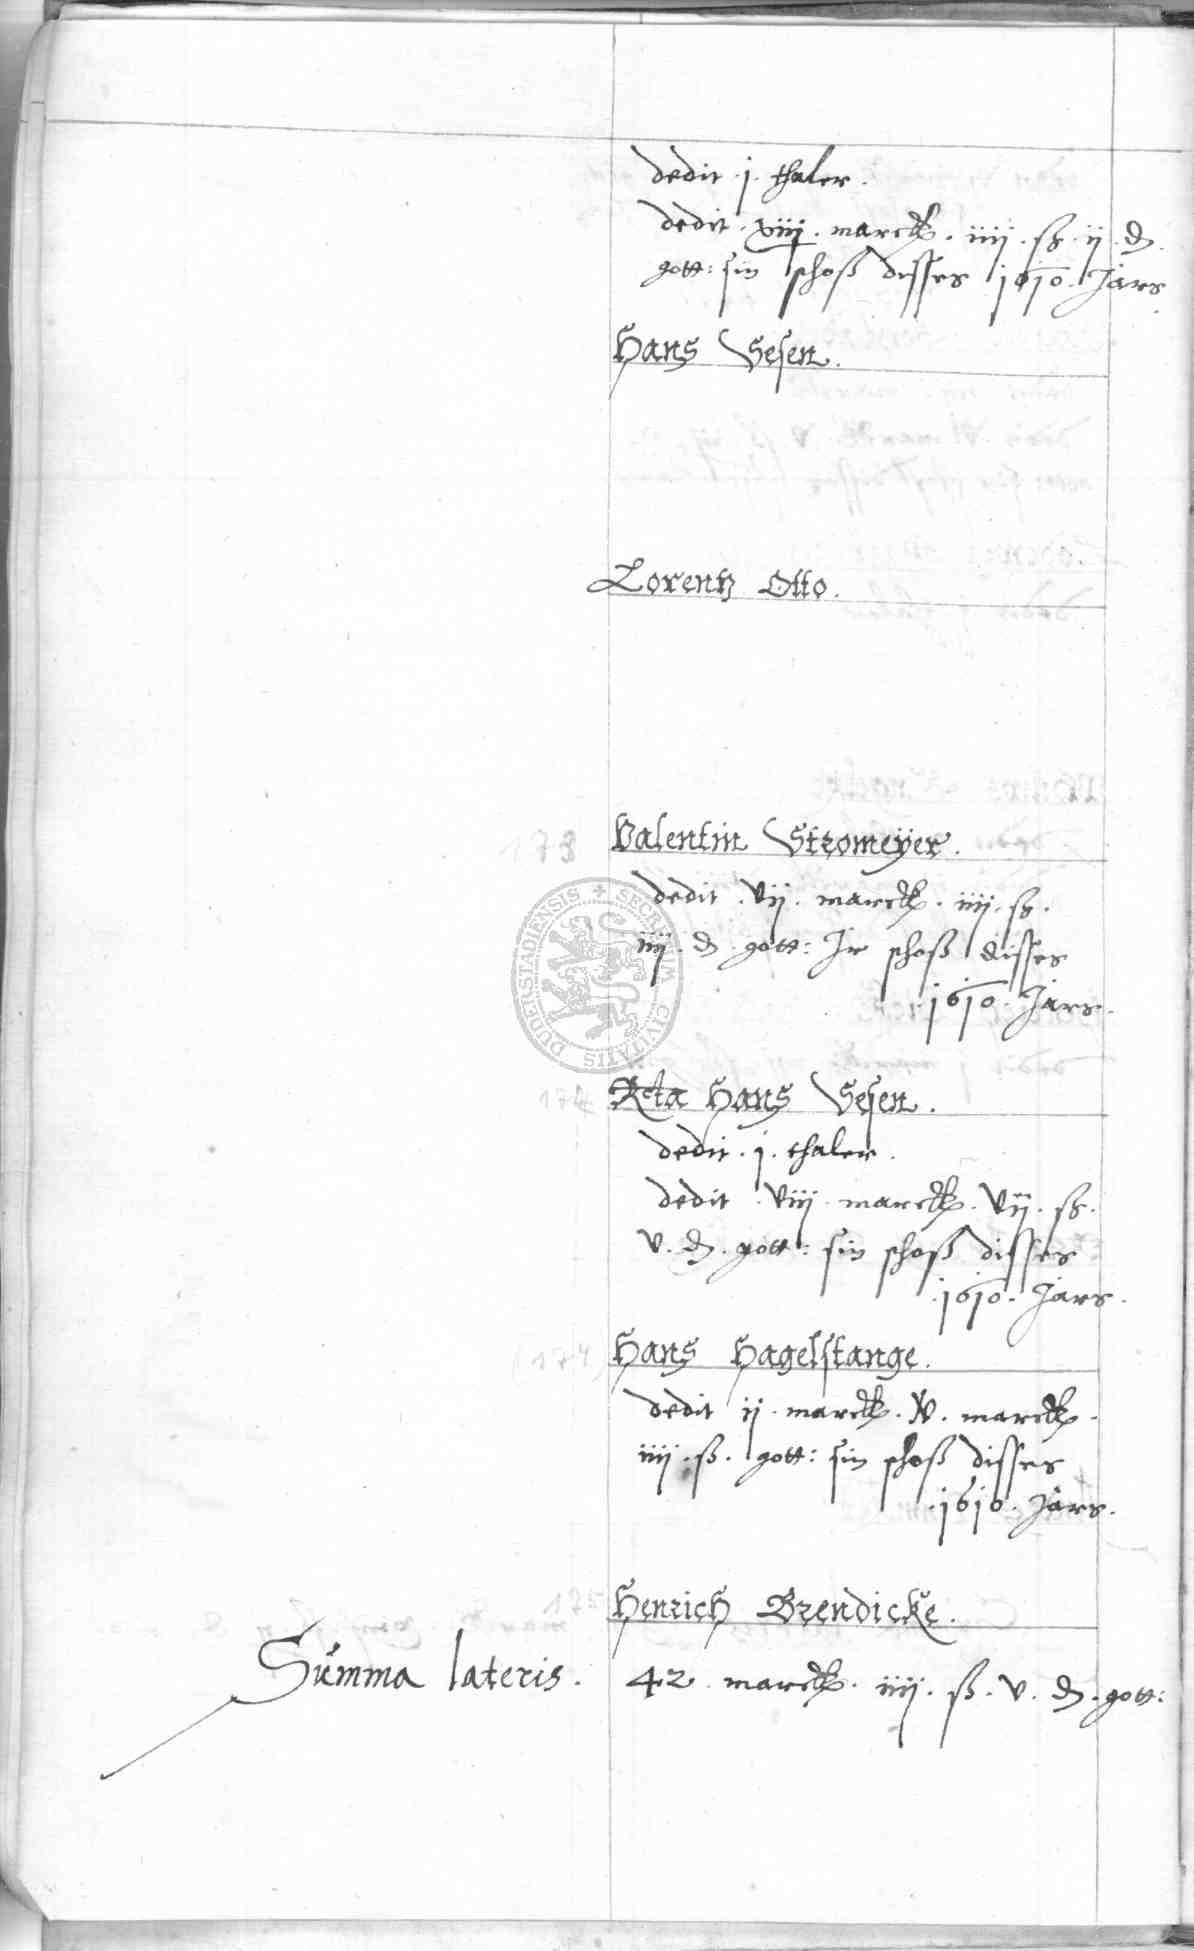 dedit . j . thaler .
dedit . xiij . marck . iiij . ß . ij . ₰ .
gott: sin schoß disses 1610 . Jars
Hans Vesen .
Lorentz Otto .
178 Valentin Stromeÿer .
dedit . vij . marck . iiij . ß .
iiij . ₰ . gott: Jr schoß disses
. 1610 . Jars .
174 Rcta Hans Vesen .
dedit . j . thaler .
dedit . viij . marck . vij . ß .
v . ₰ . gott: sin schoß disses
. 1610 . Jars .
(174) Hans Hagelstange .
dedit ij . marck . v . marck .
iiij . ß . gott: sin schoß disses
. 1610 . Jars .
175 Henrich Brendicke .
Summa lateris . 42 . marck . iiij . ß . v . ₰ . gott:
SECRETUM CIVITATIS DUDERSTADIENSIS